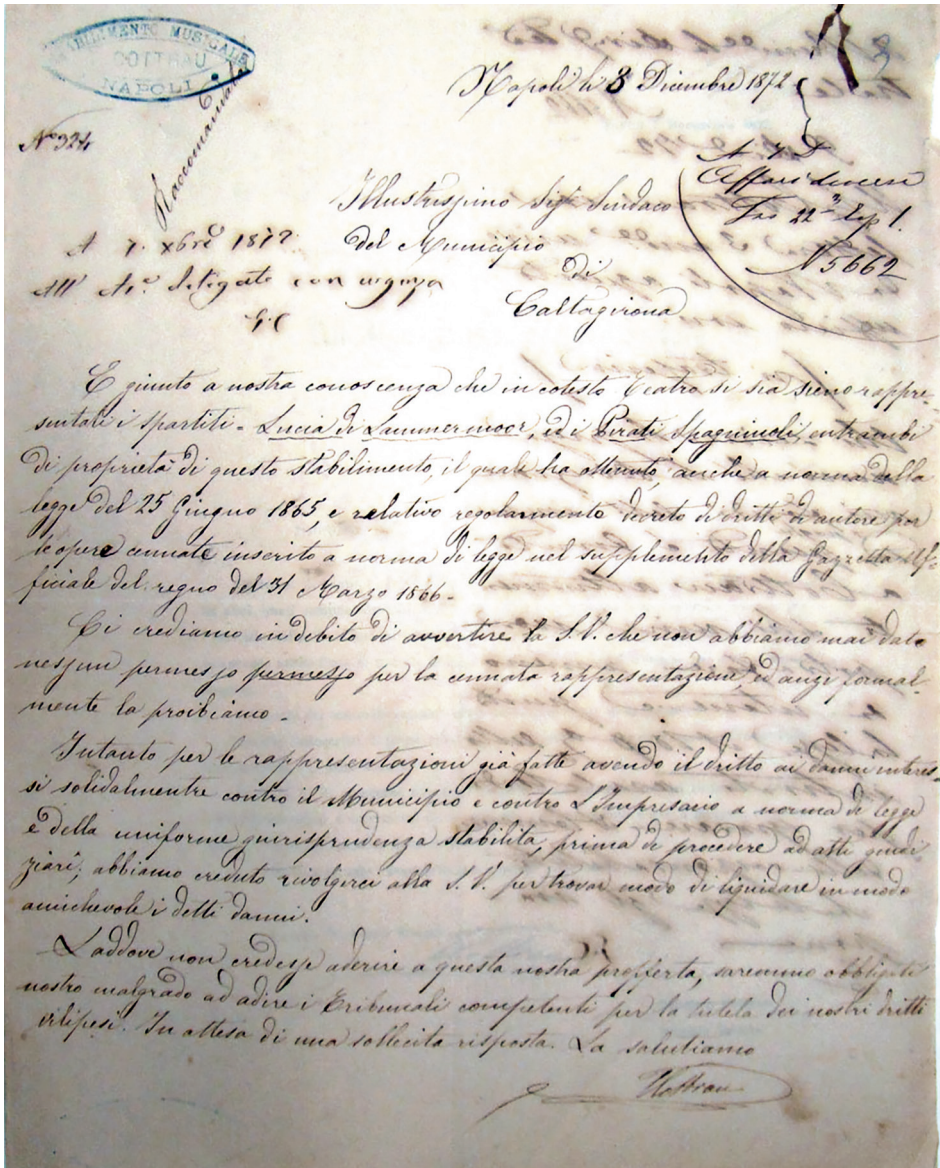 STABILIMENTO MUSICALE
COTTRAU
NAPOLI
Raccomandata
Nº 324
Napoli li 3 Dicembre 1872
A 7 D
Affari diversi
N 5662
Illustrissimo Sigr Sindaco
del Municipio
di
Caltagirona
A 7. xbre 1872
All' con urgenza
E giunto a nostra conoscenza che in cotesto Teatro si sia sieno rappre-
sentati i spartiti - Lucia di Lammermoor, ed i Pirati Spagnuoli, entrambi
di proprietà di questo stabilimento, il quale ha ottenuto, anche a norma della
legge del 25 Giugno 1865, e relativo regolarmento decreto di dritti di autore per
le opere cennate inscrito a norma di legge nel supplemento della Gazzetta Uf-
ficiale del regno del 31 Marzo 1866 -
Ci crediamo in debito di avvertire la S.V. che non abbiamo mai dato
nessun permesso permesso per la cennata rappresentazione, ed anzi formal-
mente la proibiamo -
Intanto per le rappresentazioni già fatte avendo il dritto ai danni interes-
si solidalmentre contro il Municipio e contro L'Impresario a norma di legge
e della uniforme giurisprudenza stabilita, prima di procedere ad atti giudi
ziari; abbiamo creduto rivolgerci alla S.V. per trovar modo di liquidare in modo
amichevole i detti danni.
Laddove non credesse aderire a questa nostra profferta, saremmo obbligati
nostro malgrado ad adire i Tribunali competenti per la tutela dei nostri dritti
vilipesi. In attesa di una sollecita risposta. La salutiamo
Cottrau